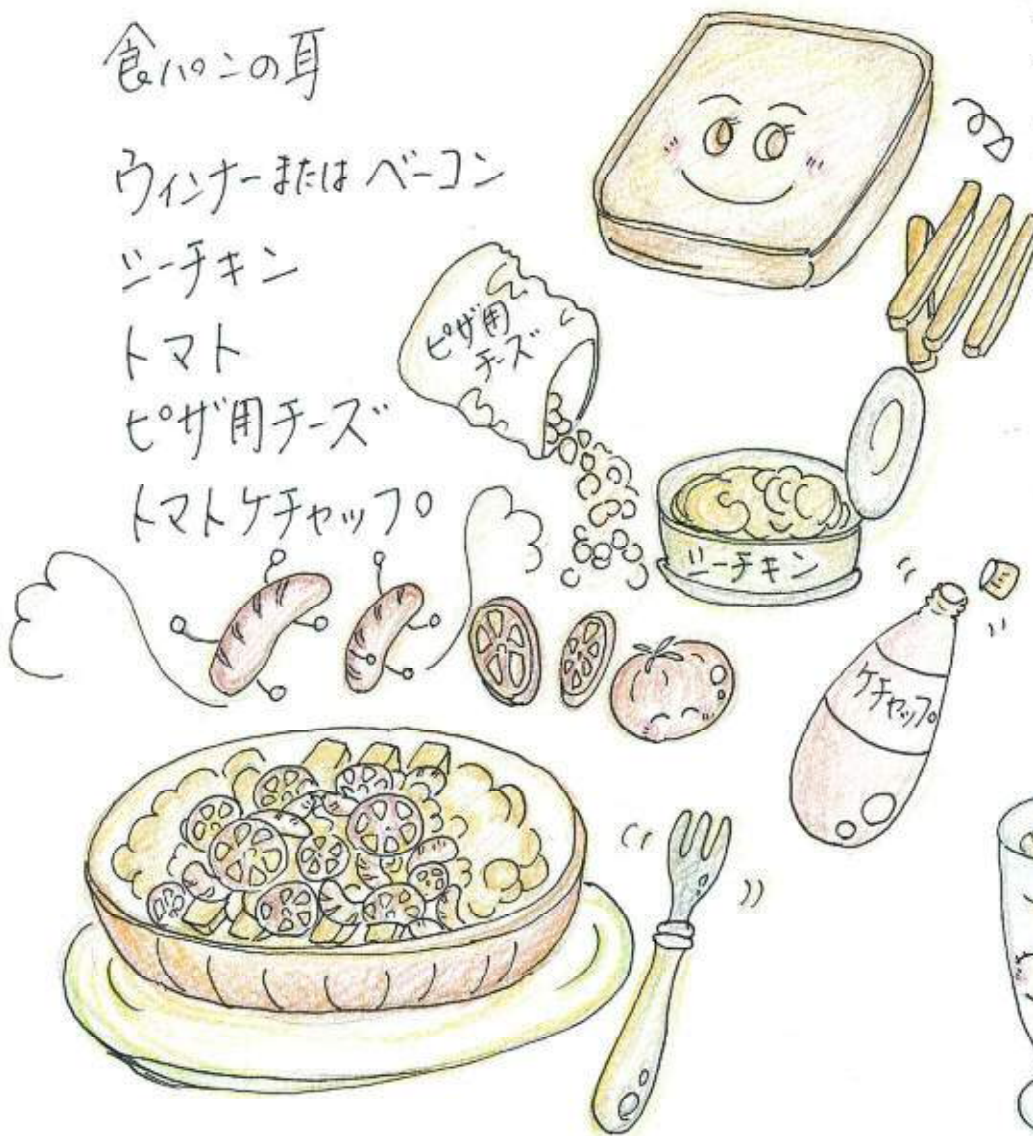 食パンの耳
ウィンナーまたはベーコン
シーチキン
トマト
ピザ用チーズ
トマトケチャップ
ピザ用
チーズ
シーチキン
ケチャップ